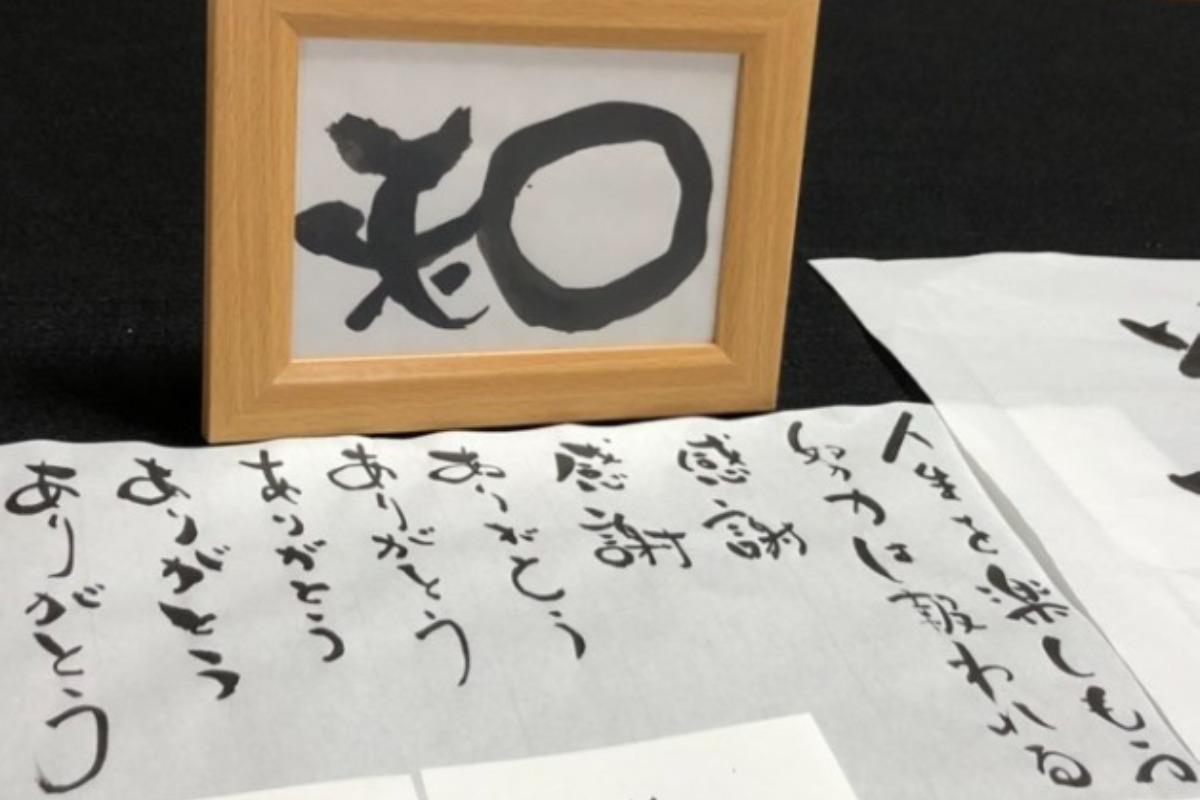 和
人生を楽しもう
努力は報われる
感謝
感謝
ありがとう
ありがとう
ありがとう
ありがとう
ありがとう